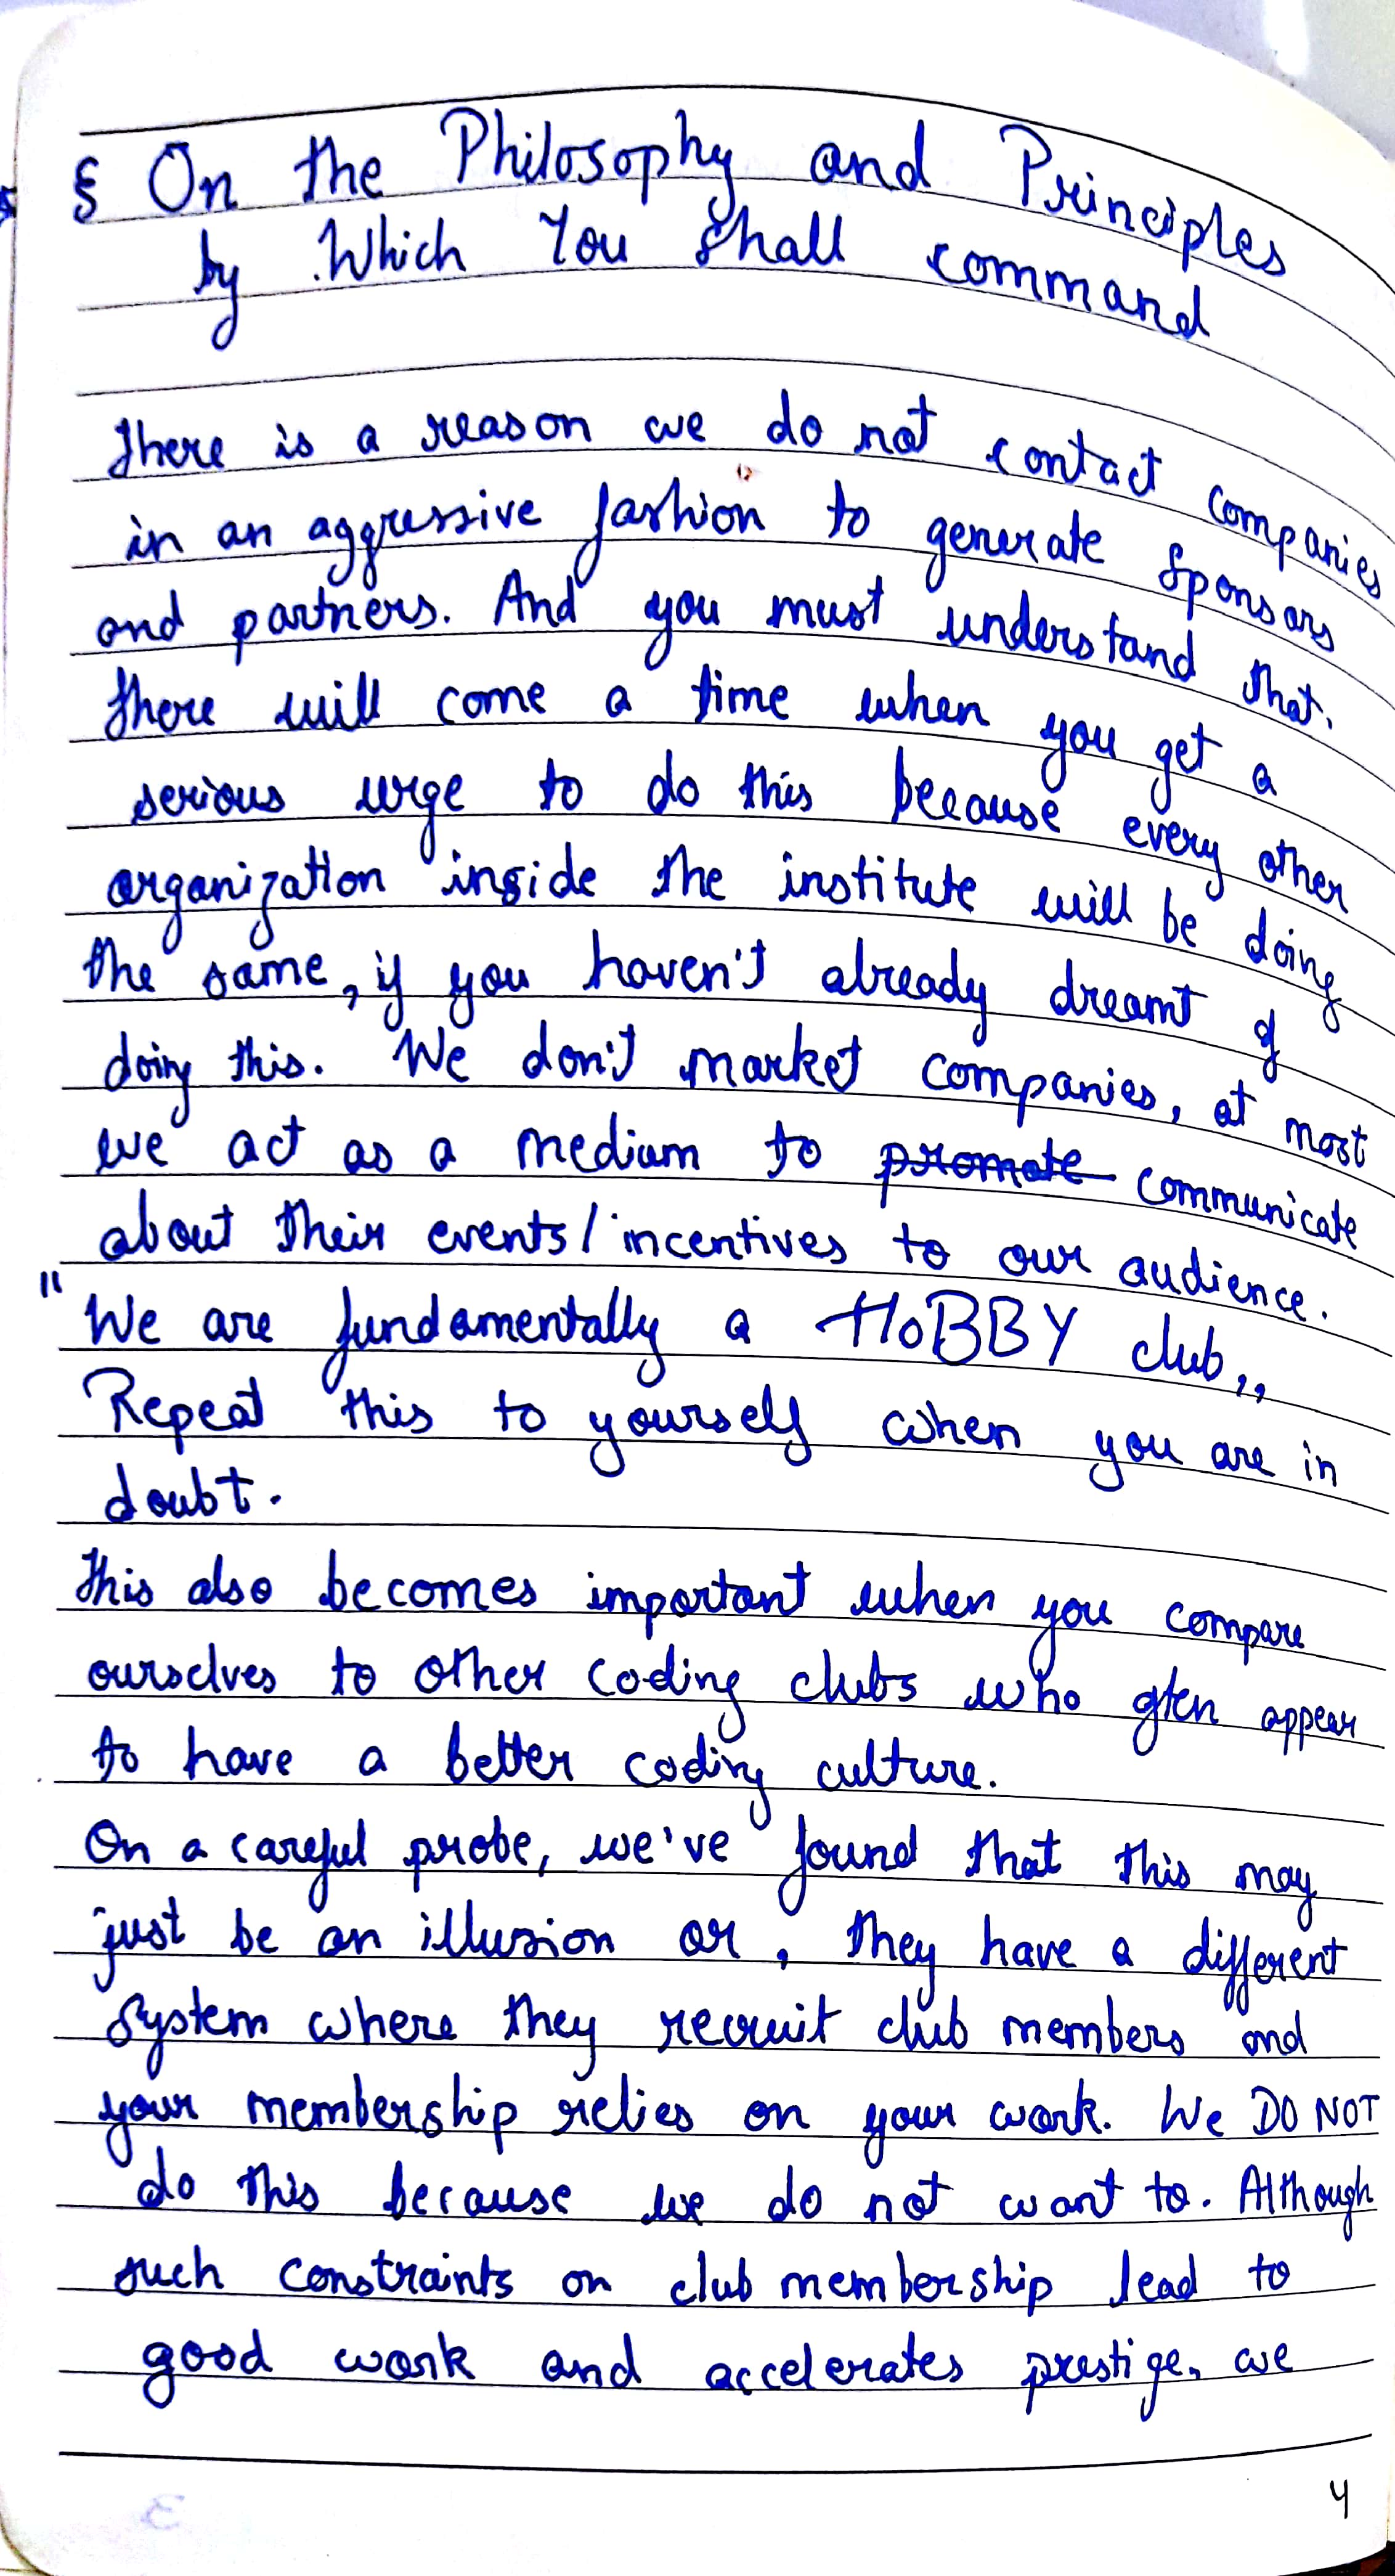 § On the Philosophy and Principles
by Which You Shall command
There is a reason we do not contact companies
in an aggressive fashion to generate sponsors
and partners. And you must understand that.
There will come a time when you get a
serious urge to do this because every other
organization inside the institute will be doing
the same, if you haven't already dreamt of
doing this. We don't market companies, at most
we act as a medium to promote communicate
about their events/incentives to our audience.
"We are fundamentally a HOBBY club,,
Repeat this to yourself when you are in
doubt.
This also becomes important when you compare
ourselves to other coding clubs who often appear
to have a better coding culture.
On a careful probe, we've found that this may
just be an illusion or, they have a different
system where they recruit club members and
your membership relies on your work. We DO NOT
do this because we do not want to. Although
such constraints on club membership lead to
good work and accelerates prestige, we
4